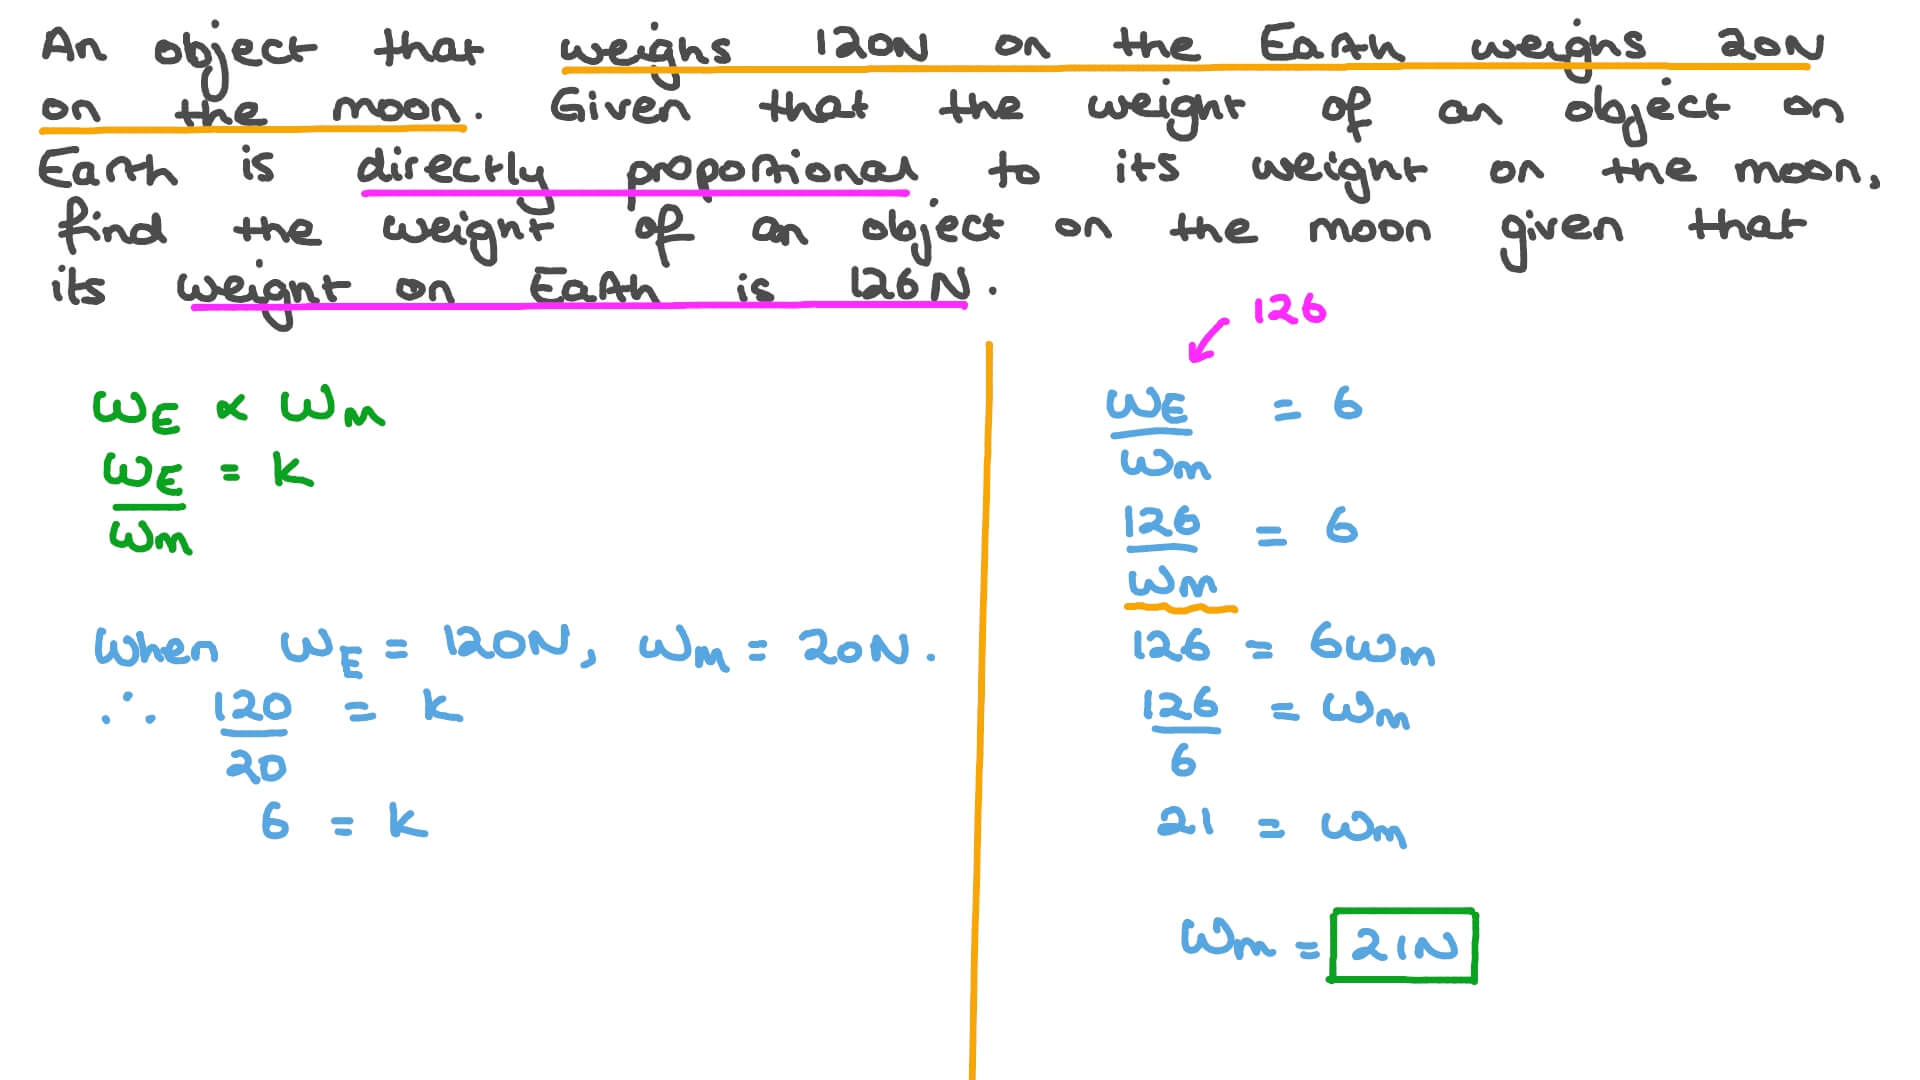 An object that weighs 120N on the Earth weighs 20N
on the moon. Given that the weight of an object on
Earth is directly proportional to its weight on the moon,
find the weight of an object on the moon given that
its weight on Earth is 126N.
WE ∝ WM
WE = k
Wm
When WE = 120N, WM = 20N.
∴ 120 = k
20
6 = k
126
WE = 6
Wm
126 = 6
Wm
126 = 6Wm
126 = Wm
6
21 = Wm
Wm = 21N